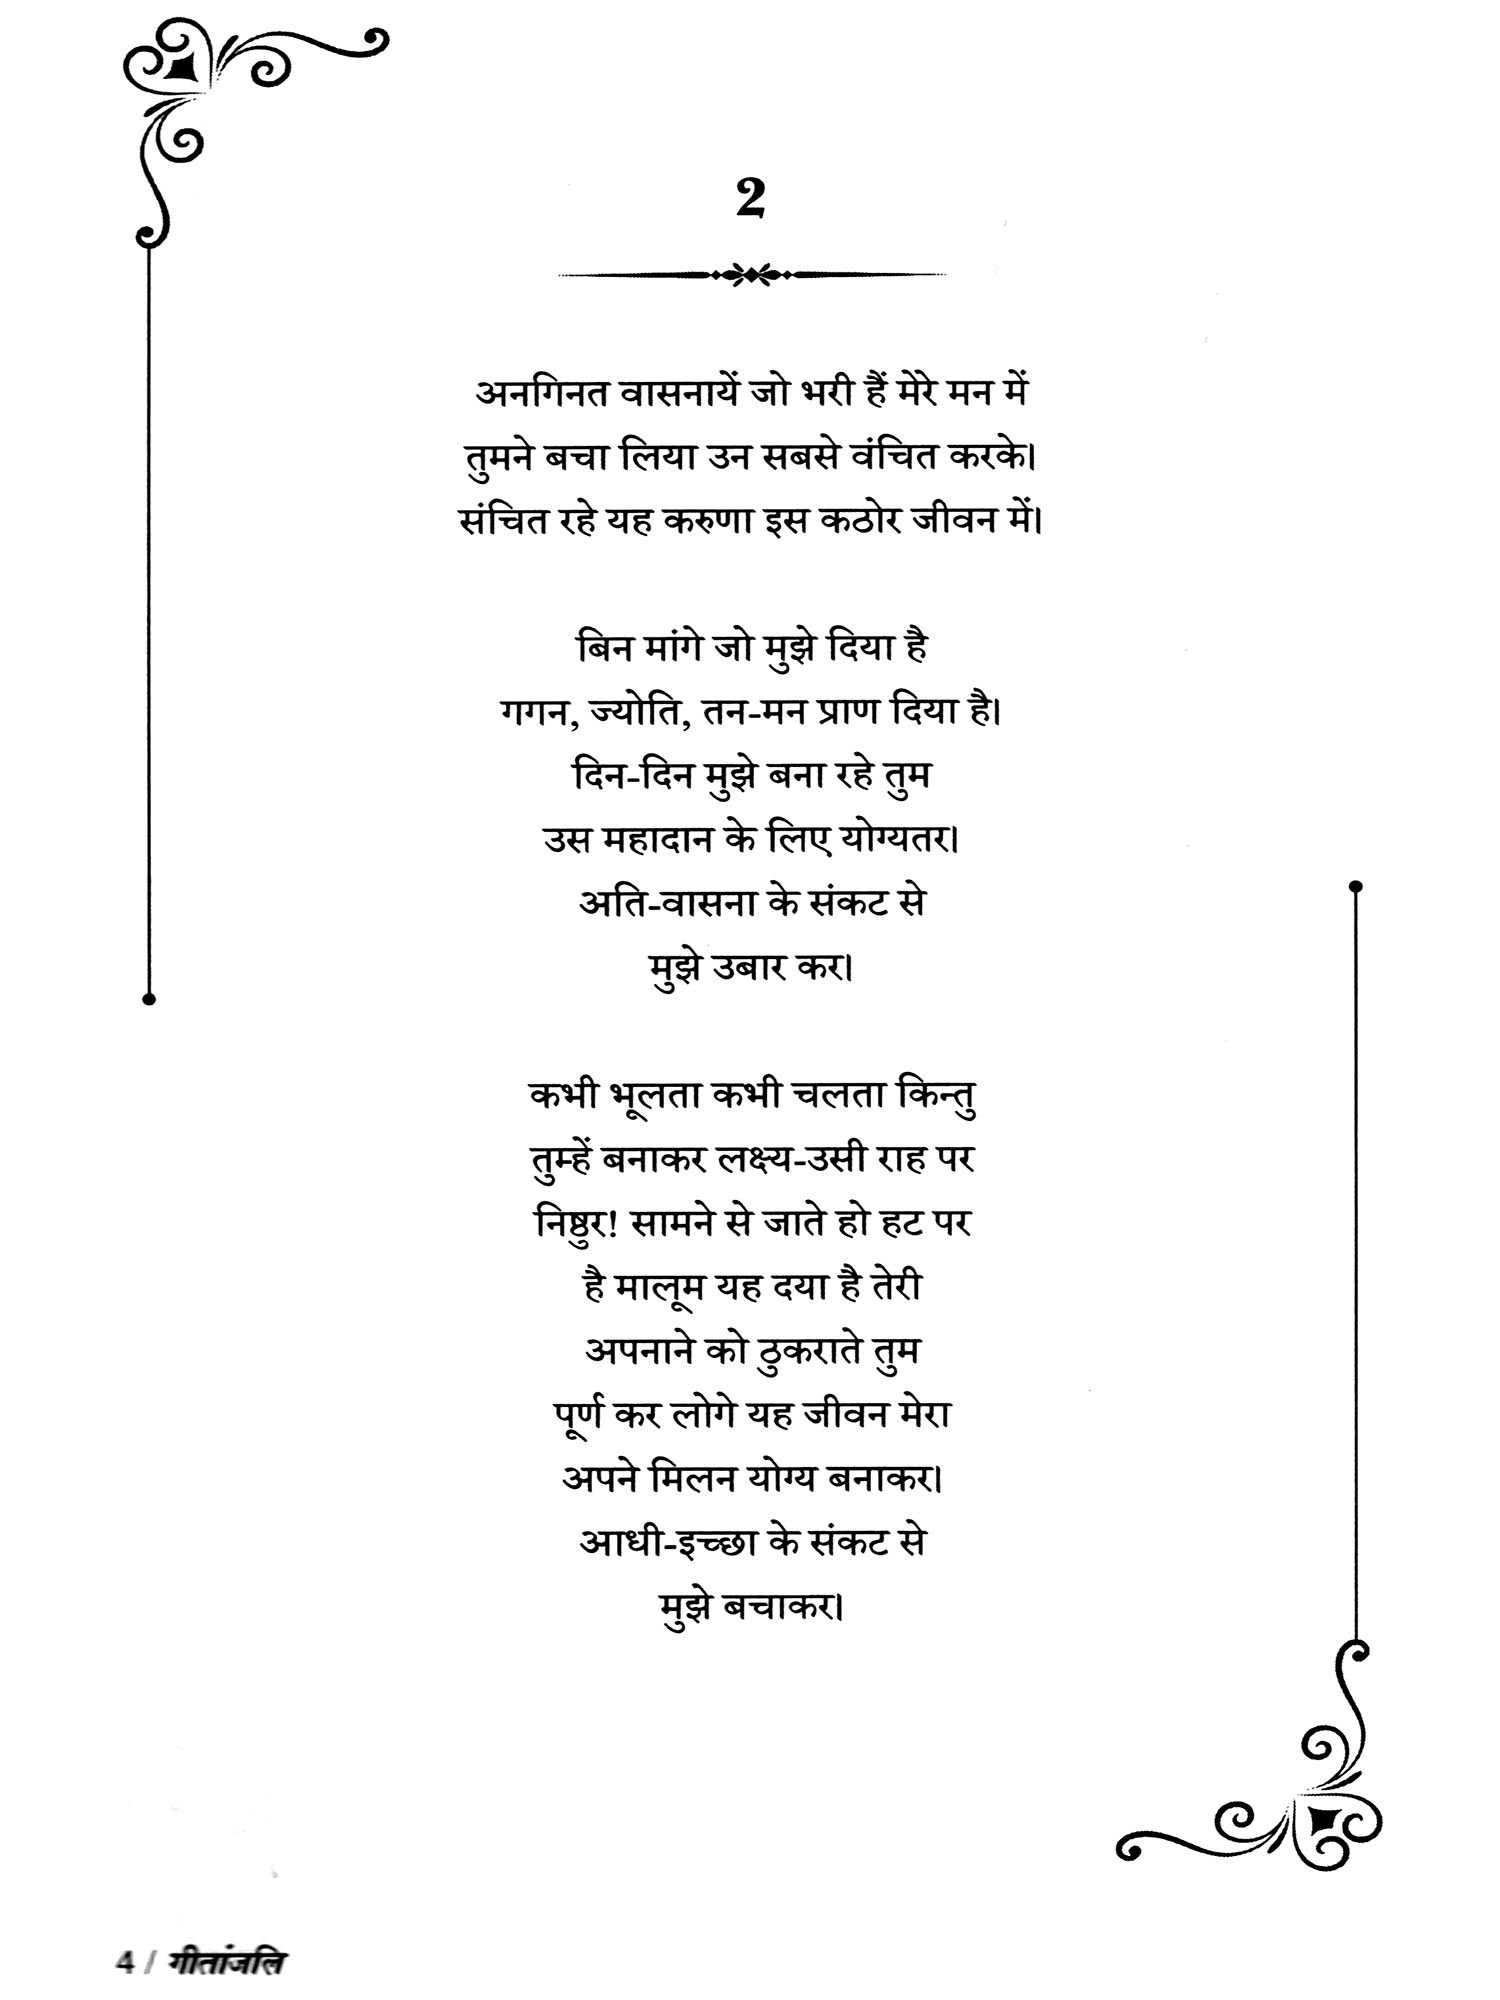 2
अनगिनत वासनायें जो भरी हैं मेरे मन में
तुमने बचा लिया उन सबसे वंचित करके।
संचित रहे यह करुणा इस कठोर जीवन में।
बिन मांगे जो मुझे दिया है
गगन, ज्योति, तन-मन प्राण दिया है।
दिन-दिन मुझे बना रहे तुम
उस महादान के लिए योग्यतर।
अति-वासना के संकट से
मुझे उबार कर।
कभी भूलता कभी चलता किन्तु
तुम्हें बनाकर लक्ष्य-उसी राह पर
निष्ठुर! सामने से जाते हो हट पर
है मालूम यह दया है तेरी
अपनाने को ठुकराते तुम
पूर्ण कर लोगे यह जीवन मेरा
अपने मिलन योग्य बनाकर।
आधी-इच्छा के संकट से
मुझे बचाकर।
4 / गीतांजलि